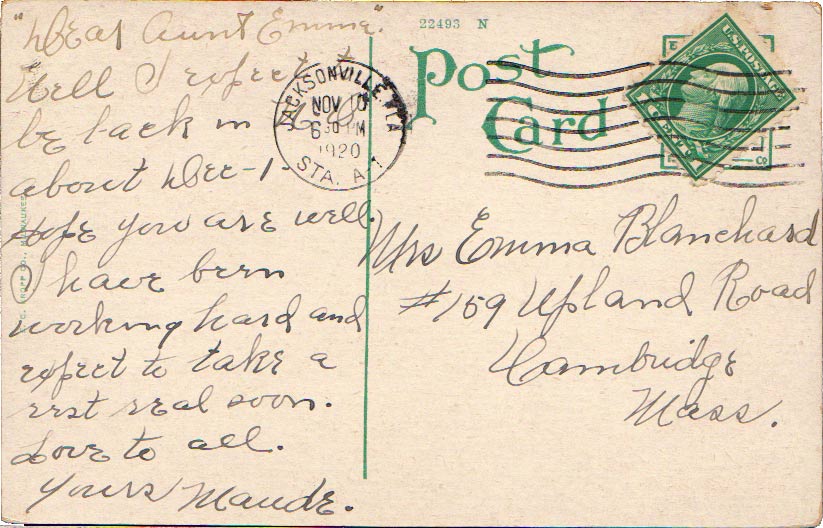 "Dear Aunt Emma."
Well I expect to
be back in
about Dec-1-
Hope you are well.
I have been
working hard and
expect to take a
rest real soon.
Love to all.
Yours Maude.
22493 N
Post
Card
JACKSONVILLE, FLA
NOV 10
6 30 PM
1920
STA. A-1
U.S. POSTAGE
Mrs Emma Blanchard
#159 Upland Road
Cambridge
Mass.